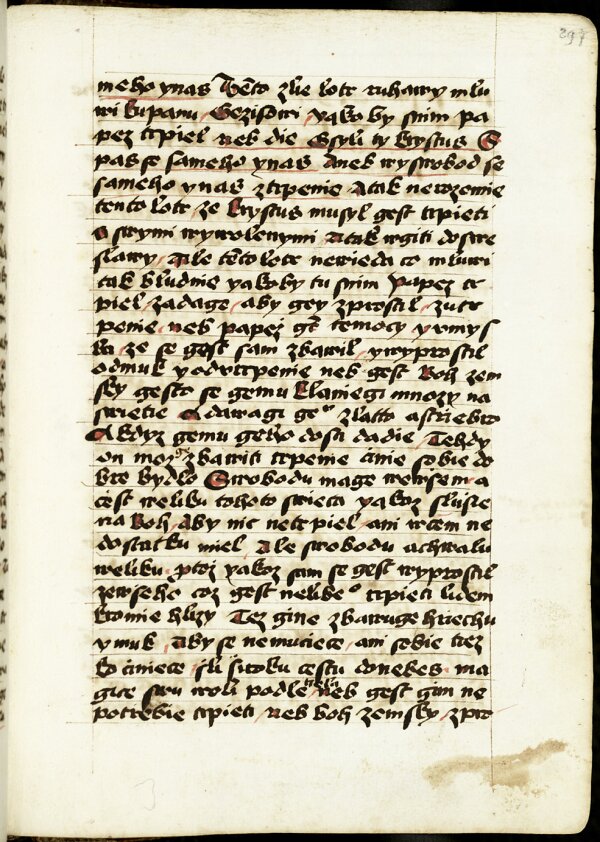 297
meho ynas Tento zlie lotr ruhawy mlu
wi kupanu Gezissowi yako by snim pa
pez trpiel neb die Gsyli ty krystus S
pas se sameho ynas Anek wyswobod se
sameho ynas ztrpenie Atak nerozemie
tento lotr ze krystus musyl gest trpieti
s swymi wywolenymi Atak wgiti do swe
slawy Ale tento lotr newieda co mluwi
tak bludnie yakoby tu snim Papez tr
piel zadage aby gey zprostil zutr
penie neb papez gt temocy yvmys
la ze se gest sam zbawil ywyprostil
odmuk yodvtrpenie neb gest Boh zem
sky gesto se gemu klaniegi mnozy na
swietie A dawagi geo zlatto astriebro
A kdyz gemu geho dosti dadie Tehdy
on moz zbawiti trpenie cinie sobie do
bre bydlo Swobodu mage wewssem a
cest weliku tohoto swieta yakoz slussie
na Boh Aby nic netrpiel ani wcem ne
dostatku miel Ale swobodu achwalu
weliku ptoz yakoz sam se gest wyprostil
zewseho coz gest nelibeo trpieti lidem
kromie hlizy Tez gine zbawuge hriechu
ymuk Aby se nemutiece ani sebie tiez
ko ciniece sli siroku cestu donebes ma
gice swu woli podle tiela neb gest gim ne
potrebie trpieti Neb boh zemsky zpro